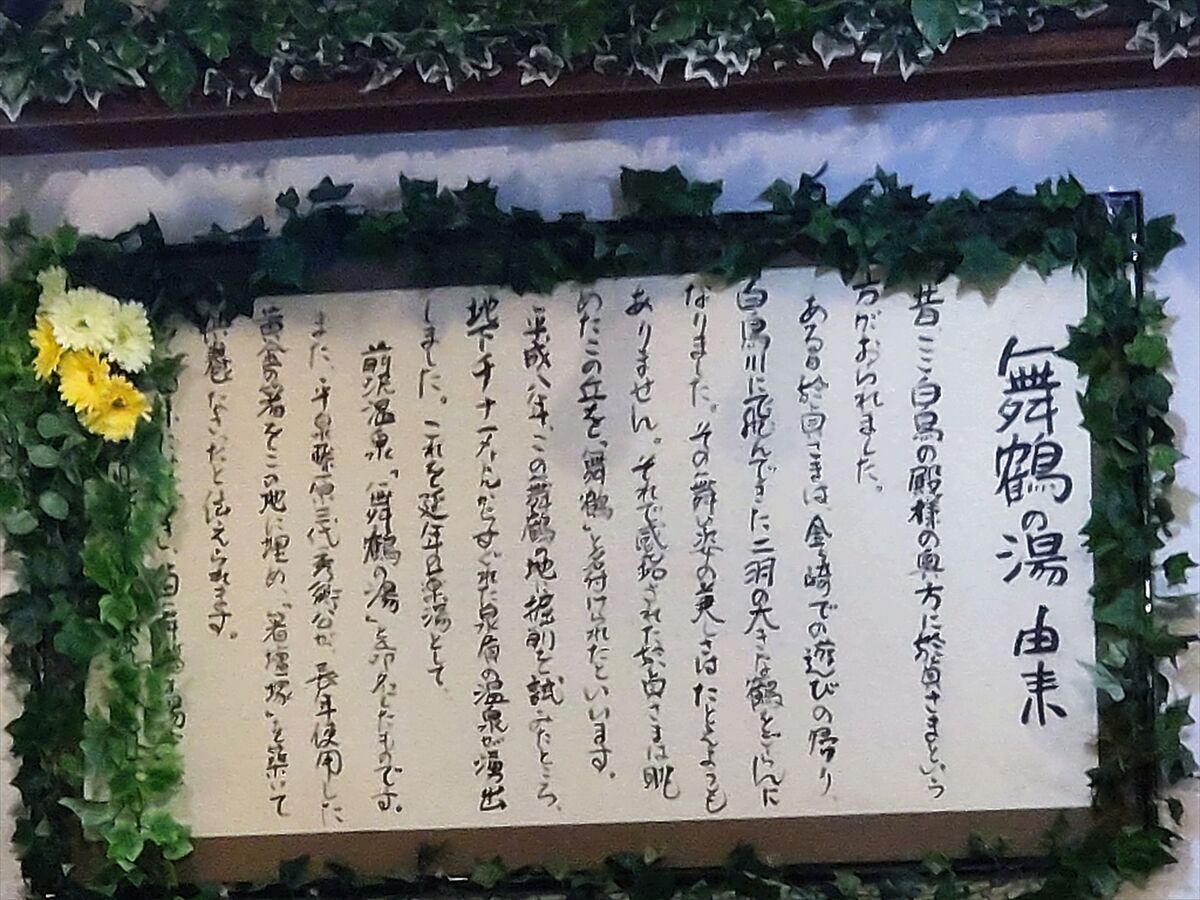 舞鶴の湯 由来
昔、ここ白鳥の殿様の奥方に於貞さまという
方がおられました。
ある日於貞さまは、金ヶ崎での遊びの帰り
白鳥川に飛んできた二羽の大きな鶴をごらんに
なりました。その舞い姿の美しさはたとえようも
ありません。それで感銘された於貞さまは眺
めたこの丘を、「舞鶴」と名付けられたといいます。
平成八年、この舞鶴の地に掘削を試みたところ、
地下千ナ一メートルからすぐれた泉質の温泉が湧出
しました。これを延年の薬湯として、
前沢温泉「舞鶴の湯」と命名したものです。
また、平泉藤原三代秀衡公が、長年使用した
黄金の箸をこの地に埋め、「箸壇塚」を築いて
供養なさったと伝えられます。